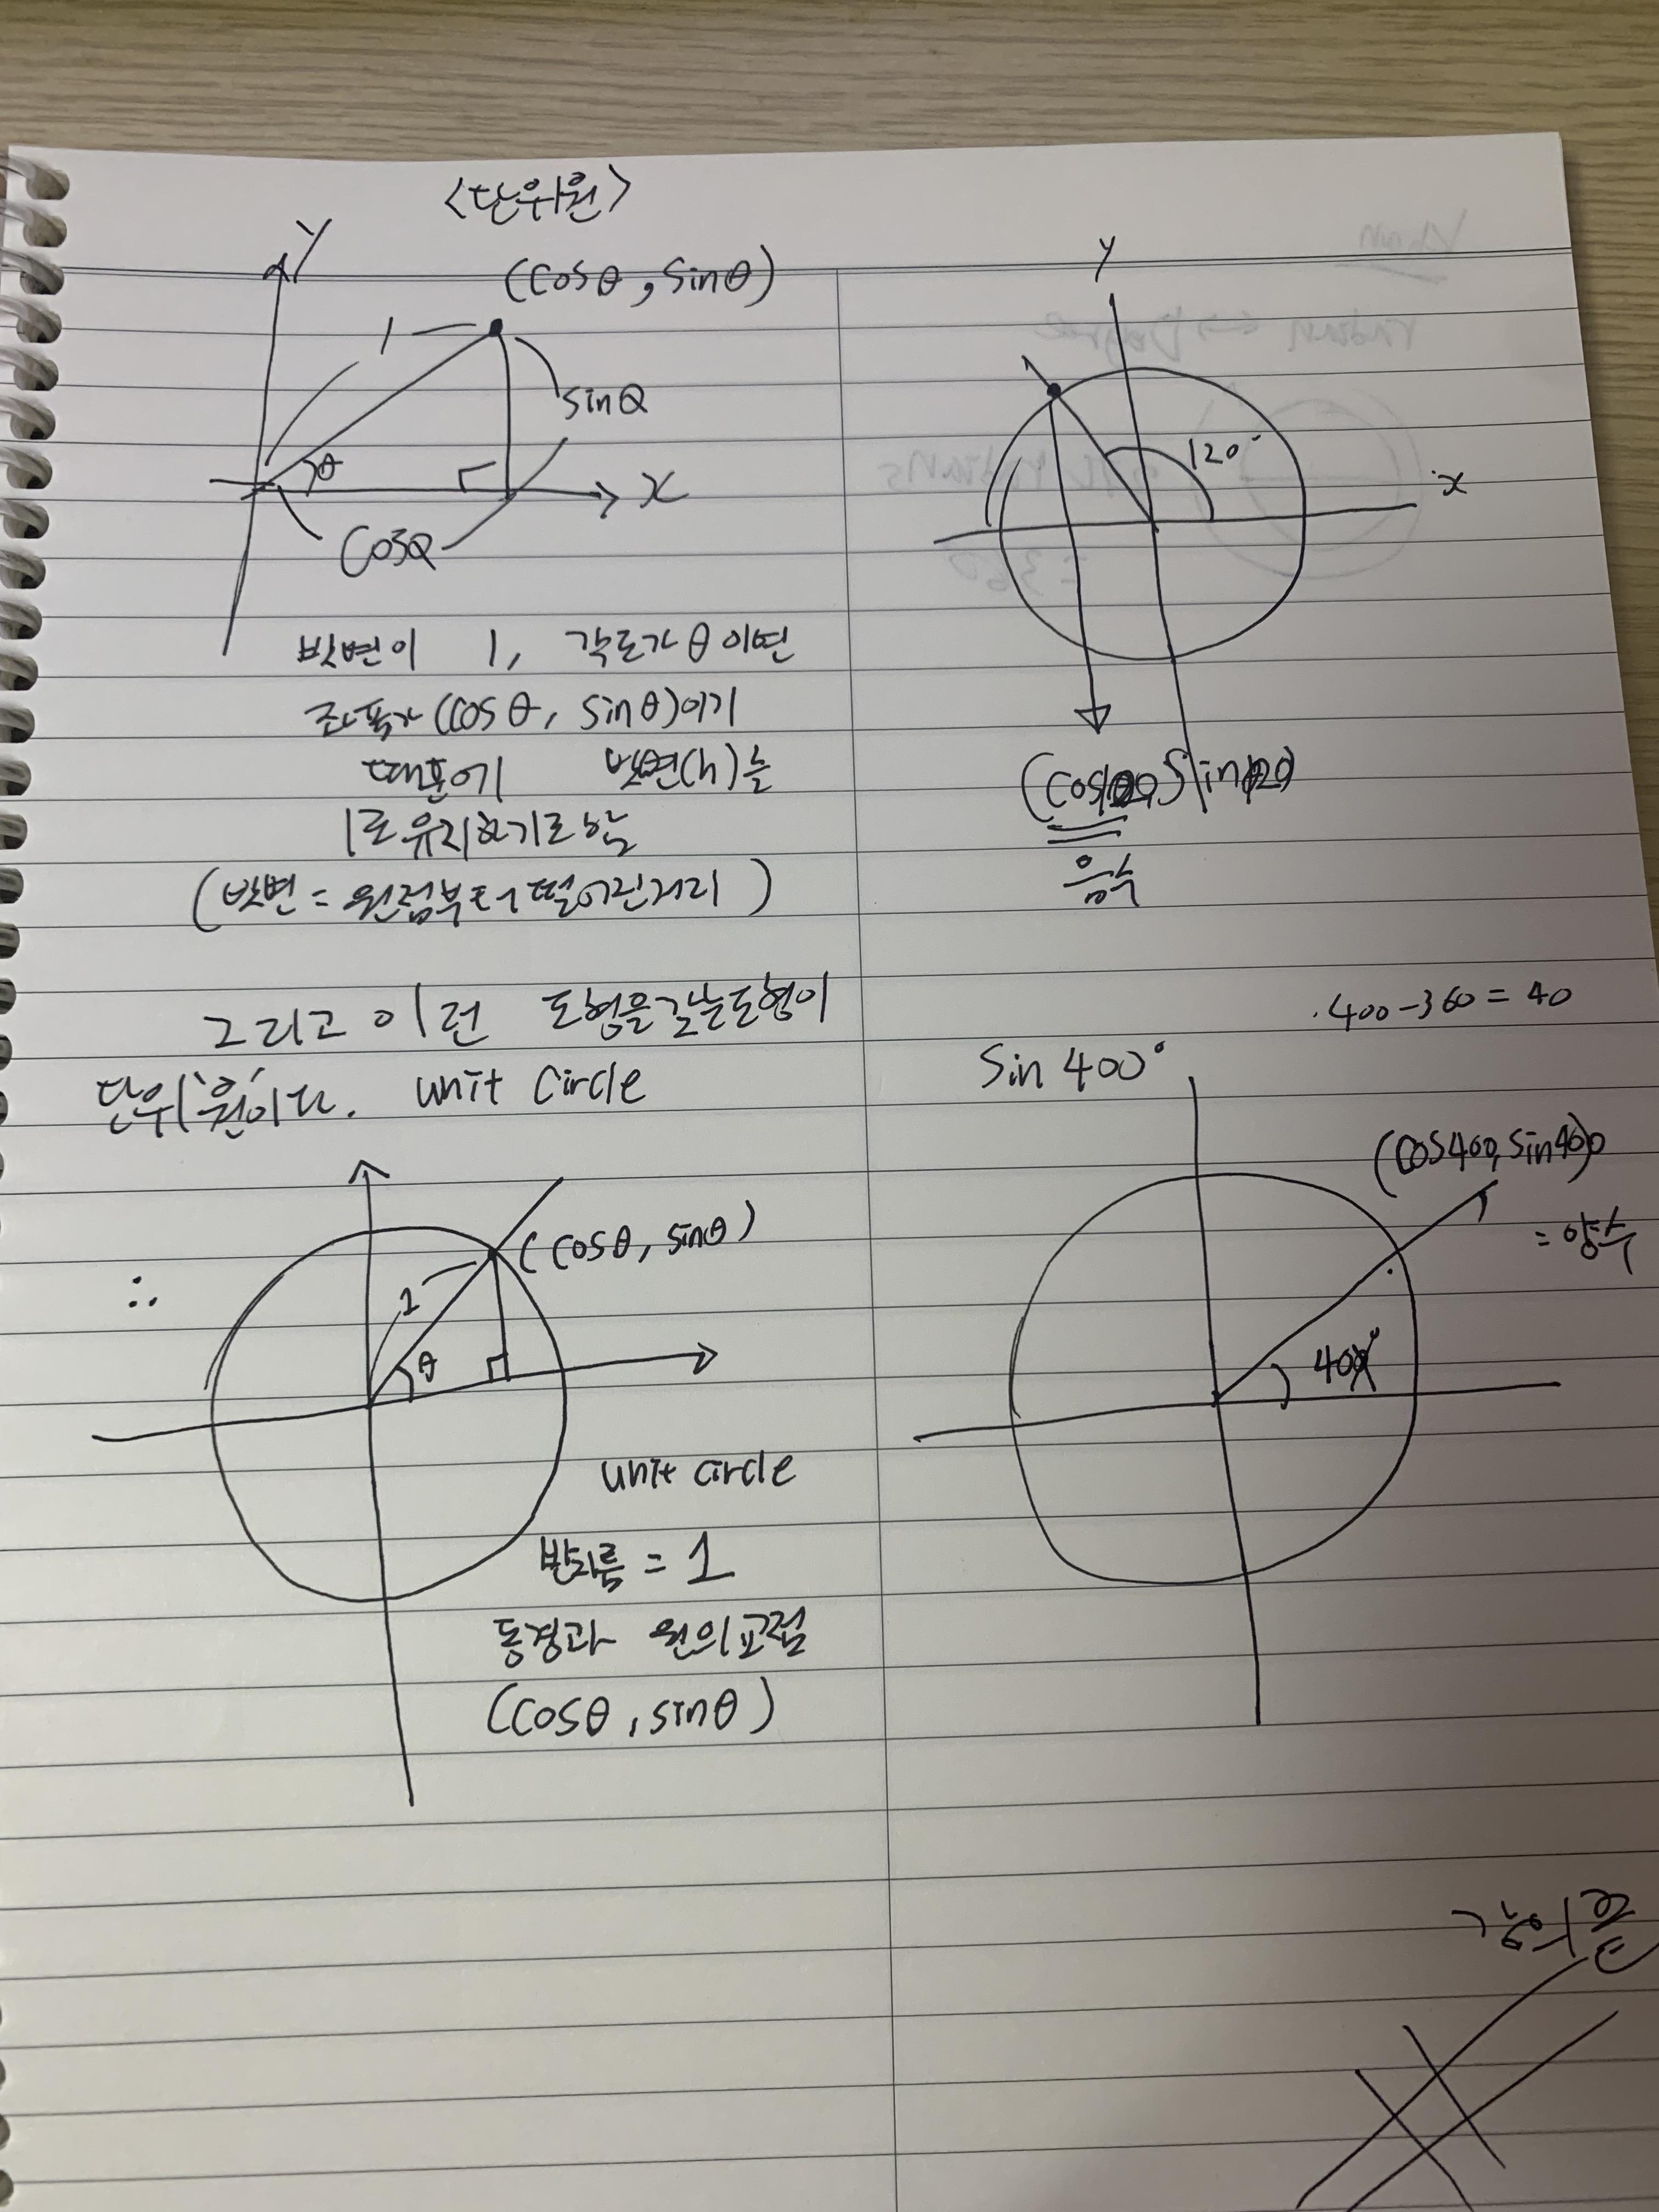 <단위원>
Y
(cosθ, sinθ)
1
sinθ
θ
x
cosθ
빗변이 1, 각도가 θ이면
좌표가 (cosθ, sinθ)이기
때문에 빗변(h)를
1로 유지하기로 함
(빗변 = 원점부터 떨어진거리)
그리고 이런 도형을 갖는 도형이
단위'원'이다. unit circle
∴
(cosθ, sinθ)
1
θ
unit circle
반지름 = 1
동경과 원의 교점
(cosθ, sinθ)
Y
120°
x
(cos120, sin120)
음수
400-360=40
Sin 400°
(cos400, sin400)
=양수
400°